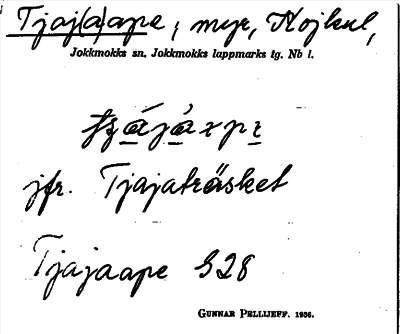 Tjaj(a)ape, myr, Kojkul,
Jokkmokks sn. Jokkmokks lappmarks tg. Nb l.
jfr. Tjajaträsket
Tjajaape S28
GUNNAR PELLIJEFF. 1936.